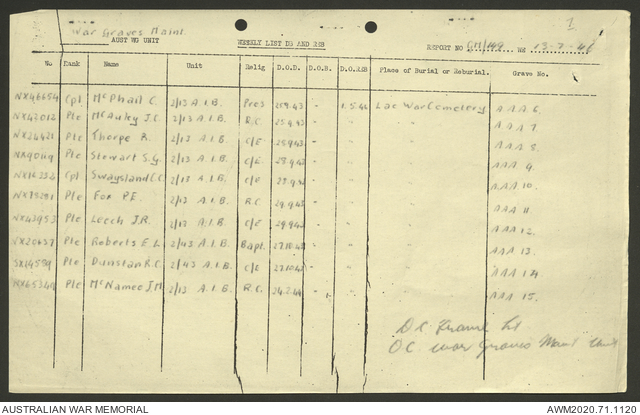 1
War Graves Maint.
AUST WG UNIT WEEKLY LIST DB AND REB REPORT NO GM/149 WE 13-7-46
No Rank Name Unit Relig D.O.D. D.O.B. D.O.REB Place of Burial or Reburial. Grave No.
NX46654 Cpl McPhail C. 2/13 A.I.B. Pres 25.9.43 - 1.5.46 Lae War Cemetery AAA 6.
Pte McAuley J.C. 2/13 A.I.B. R.C. 25.9.43 - " " AAA 7.
NX24421 Pte Thorpe R. 2/13 A.I.B C/E 25.9.43 - " " AAA 8.
Pte Stewart S.G. 2/13 A.I.B. C/E 28.9.43 - " " AAA 9.
Cpl Swaysland C.C. 2/13 A.I.B. C/E 28.9.43 - " " AAA 10.
Pte Fox P.E. 2/13 A.I.B. R.C. 29.9.43 - " " AAA 11.
NX42953 Pte Leech J.R. 2/13 A.I.B. C/E 29.9.43 - " " AAA 12.
Pte Roberts E.L. 2/43 A.I.B. Bapt. 27.10.43 - " " AAA 13.
SX14559 Pte Dunstan R.C. 2/43 A.I.B. C/E 27.10.43 - " " AAA 14.
NX65340 Pte McNamee J.M. 2/13 A.I.B. R.C. 24.2.44 - " " AAA 15.
Lt
OC War Graves Maint Unit
AUSTRALIAN WAR MEMORIAL AWM2020.71.1120